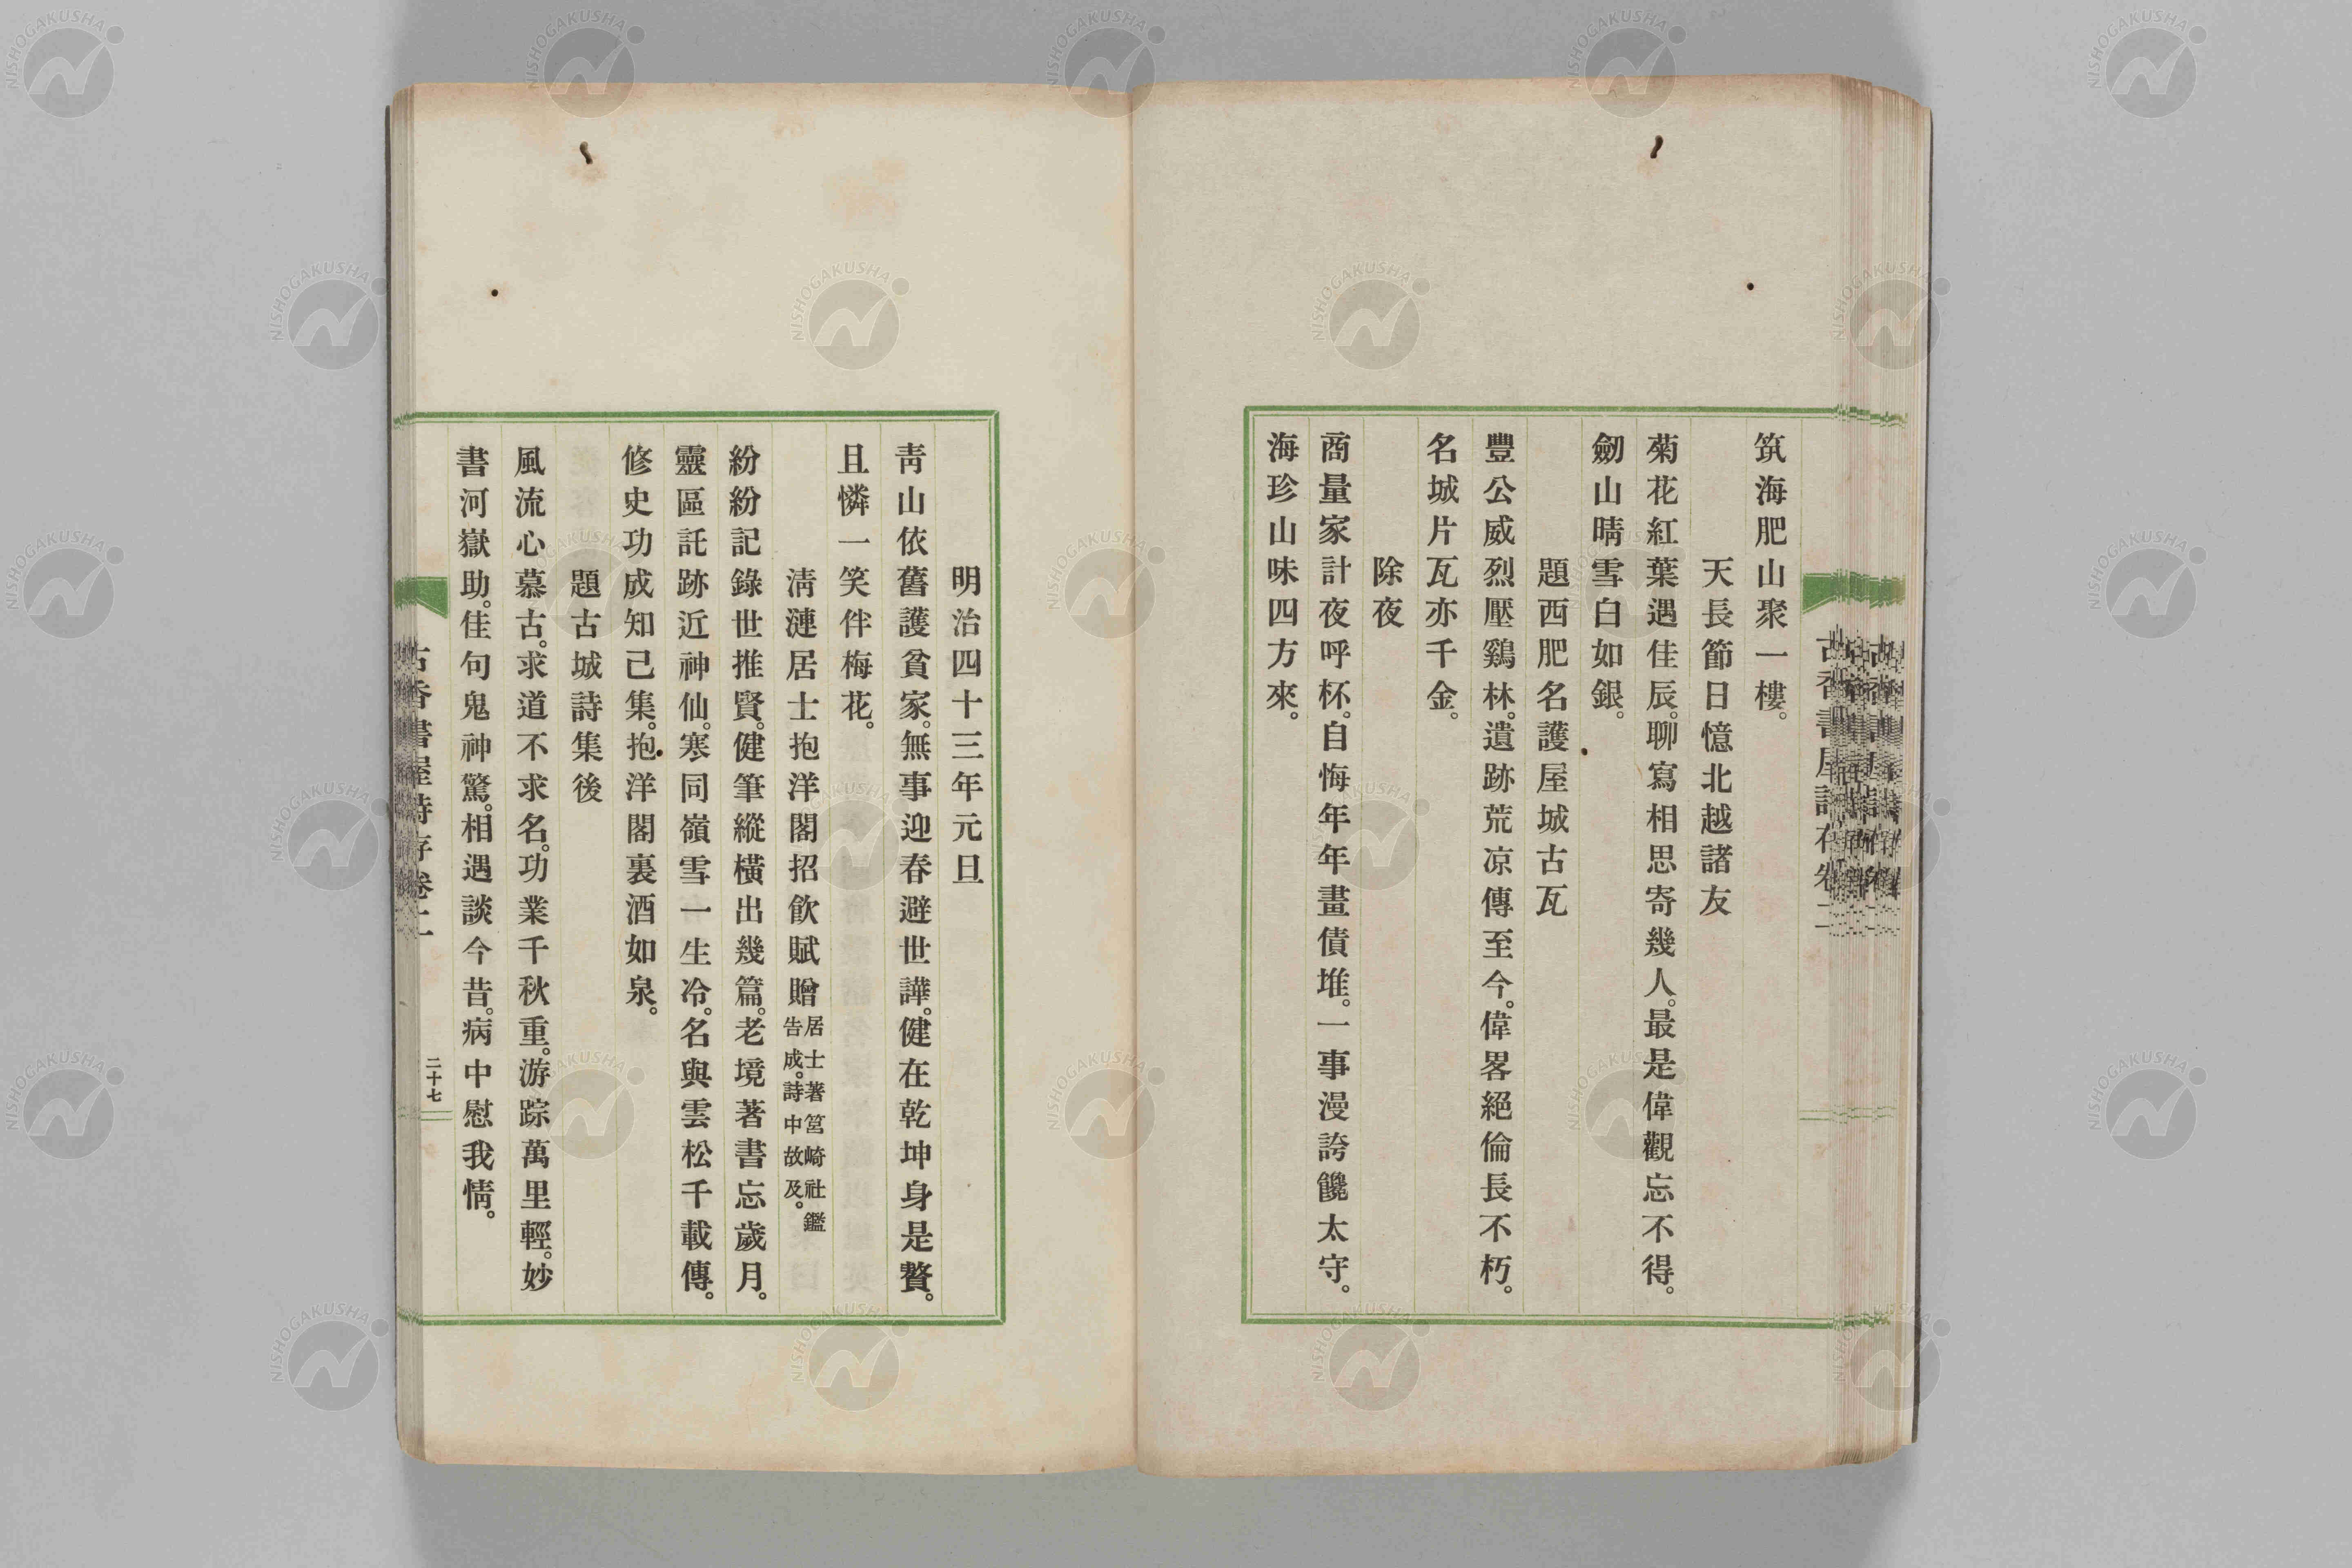 筑海肥山聚一樓。
天長節日憶北越諸友
菊花紅葉遇佳辰。聊寫相思寄幾人。最是偉觀忘不得。
劒山晴雪白如銀。
題西肥名護屋城古瓦
豐公威烈壓鷄林。遺跡荒凉傳至今。偉畧絕倫長不朽。
名城片瓦亦千金。
除夜
商量家計夜呼杯。自悔年年畫債堆。一事漫誇饞太守。
海珍山味四方來。
明治四十三年元旦
靑山依舊護貧家。無事迎春避世譁。健在乾坤身是贅。
且憐一笑伴梅花。
淸漣居士抱洋閣招飮賦贈居士著筥崎社鑑告成。詩中故及。
紛紛記錄世推賢。健筆縱橫出幾篇。老境著書忘歲月。
靈區託跡近神仙。寒同嶺雪一生冷。名與雲松千載傳。
修史功成知己集。抱洋閣裏酒如泉。
題古城詩集後
風流心慕古。求道不求名。功業千秋重。游踪萬里輕。妙
書河嶽助。佳句鬼神驚。相遇談今昔。病中慰我情。
古香書屋詩存卷二
二十七
NISHOGAKUSHA